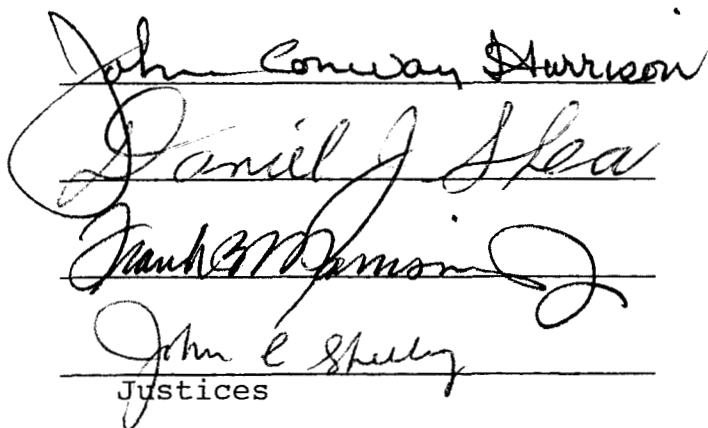 John Conway Harrison
Daniel J. Shea
Frank B. Morrison Jr.
John C. Sheehy
Justices